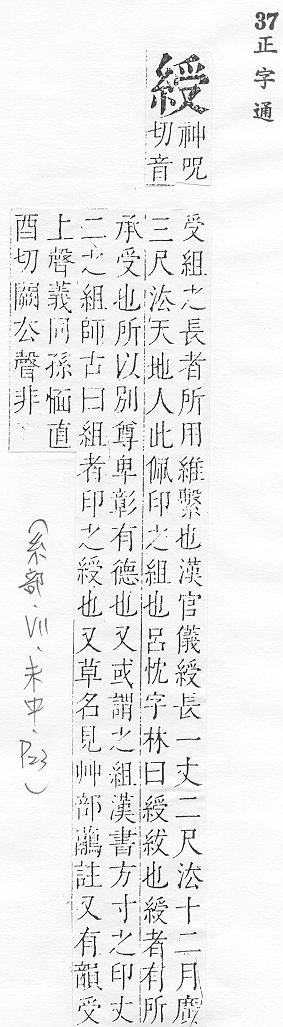 37正字通
綬
神呪
切音
受組之長者所用維繫也漢官儀綬長一丈二尺法十二月廣
三尺法天地人此佩印之組也呂忱字林曰綬紱也綬者有所
承受也所以別尊卑彰有德也又或謂之組漢書方寸之印丈
二之組師古曰組者印之綬也又草名見艸部虉註又有韻受
上聲義同孫愐直
酉切闕去聲非
(糸部·VII·未中·P23)